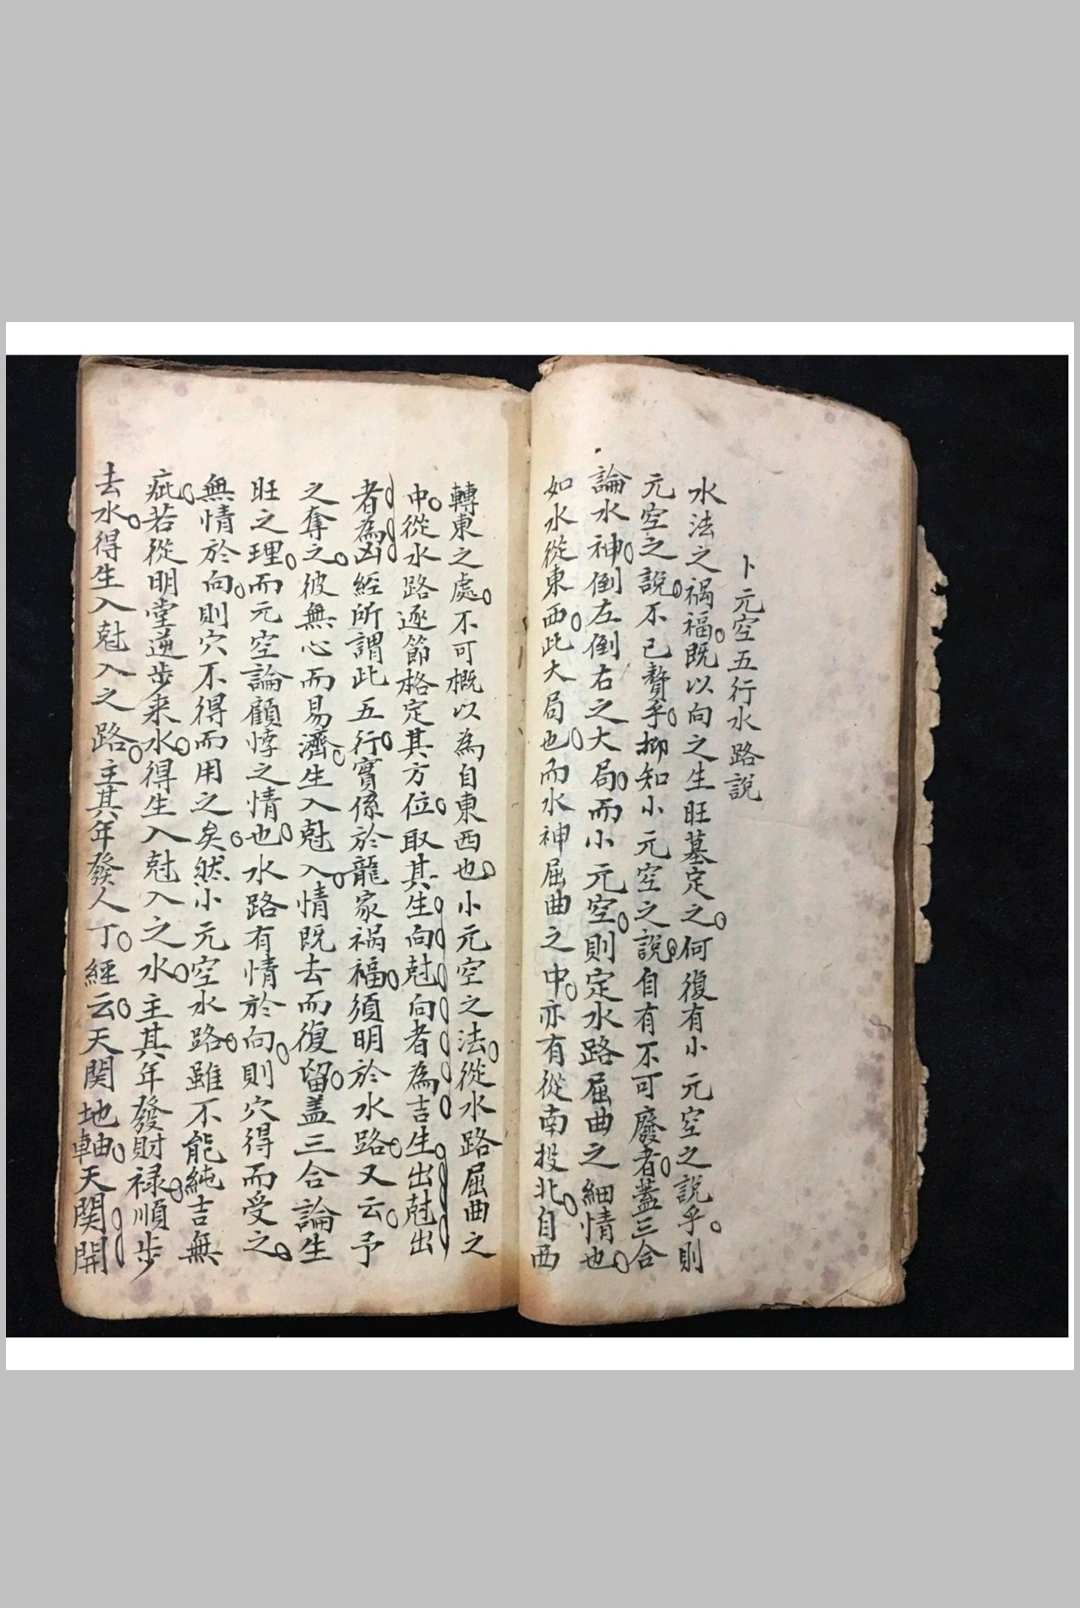 卜元空五行水路說
水法之禍福既以向之生旺墓定之何復有小元空之說乎則
元空之說不已贅乎抑知小元空之說自有不可廢者蓋三合
論水神倒左倒右之大局而小元空則定水路屈曲之細情也
如水從東西此大局也而水神屈曲之中亦有從南投北自西
轉東之處不可概以為自東西也小元空之法從水路屈曲之
中從水路逐節格定其方位取其生向尅向者為吉生出尅出
者為凶經所謂此五行實係於龍家禍福須明於水路又云予
之奪之彼無心而易濟生入尅入情既去而復留盖三合論生
旺之理而元空論顧悖之情也水路有情於向則穴得而受之
無情於向則穴不得而用之矣然小元空水路雖不能純吉無
疵若從明堂逆步来水得生入尅入之水主其年發財禄順步
去水得生入尅入之路主其年發人丁經云天関地軸天関開